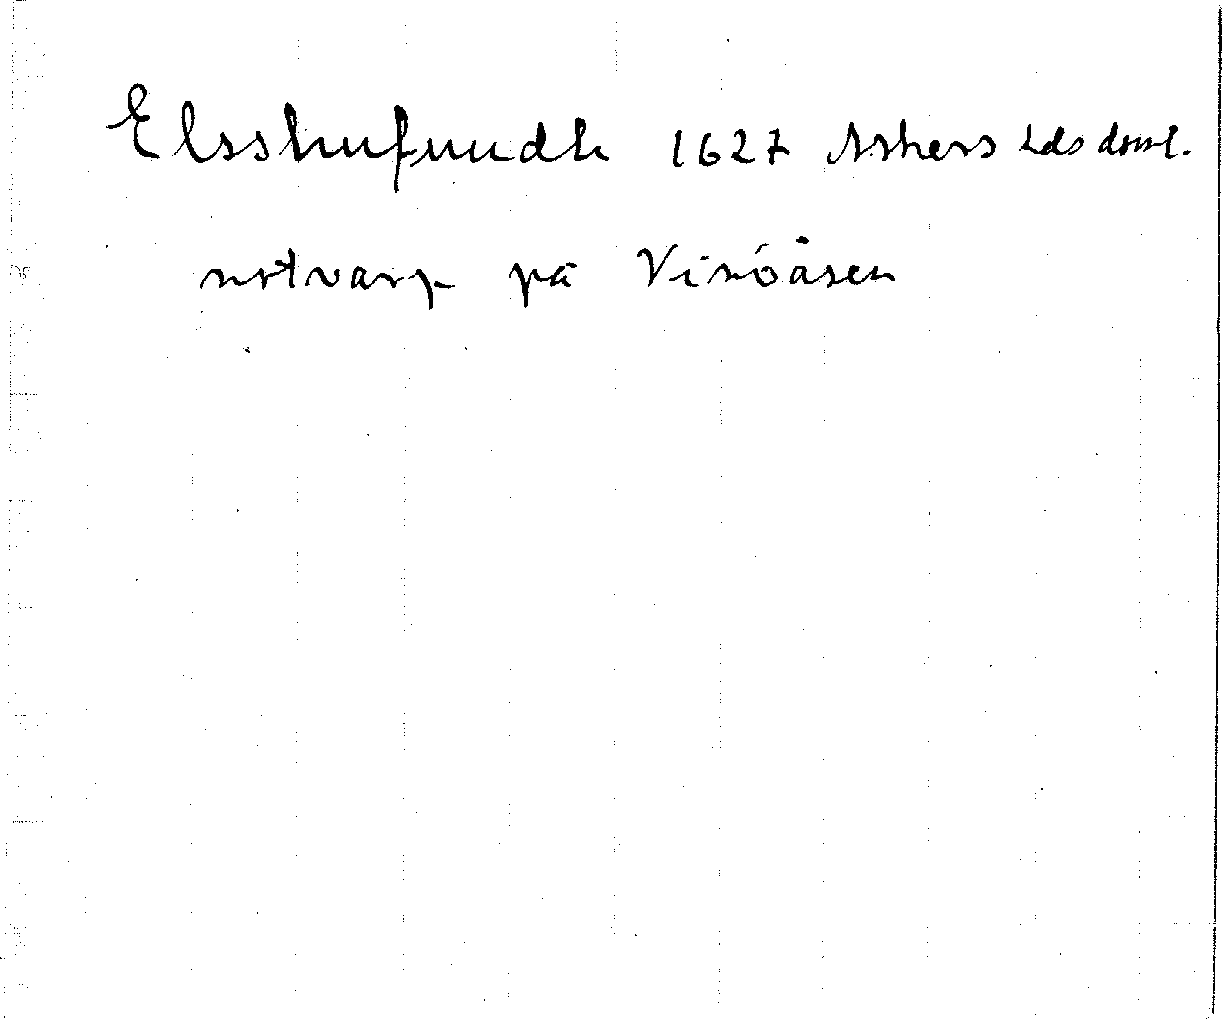 Elsshufuudh 1627 Askers hds domb.
notvarp på Vinöåsen